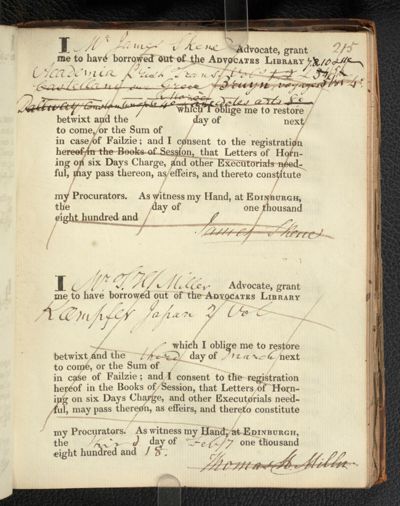 215
I Mr James Skene Advocate, grant
me to have borrowed out of the ADVOCATES LIBRARY
Academia
Castellan Grece Bruyn
which I oblige me to restore
betwixt and the day of next
to come, or the Sum of
in case of Failzie; and I consent to the registration
hereof in the Books of Session, that Letters of Horn-
ing on six Days Charge, and other Executorials need-
ful, may pass thereon, as effeirs, and thereto constitute
my Procurators. As witness my Hand, at EDINBURGH,
the day of one thousand
eight hundred and
James Skene
I Mr T. H. Miller Advocate, grant
me to have borrowed out of the ADVOCATES LIBRARY
Kæmpfer Japan 2 Vol
which I oblige me to restore
betwixt and the third day of March next
to come, or the Sum of
in case of Failzie; and I consent to the registration
hereof in the Books of Session, that Letters of Horn-
ing on six Days Charge, and other Executorials need-
ful, may pass thereon, as effeirs, and thereto constitute
my Procurators. As witness my Hand, at EDINBURGH,
the third day of Feby one thousand
eight hundred and 18.
Thomas H. Miller